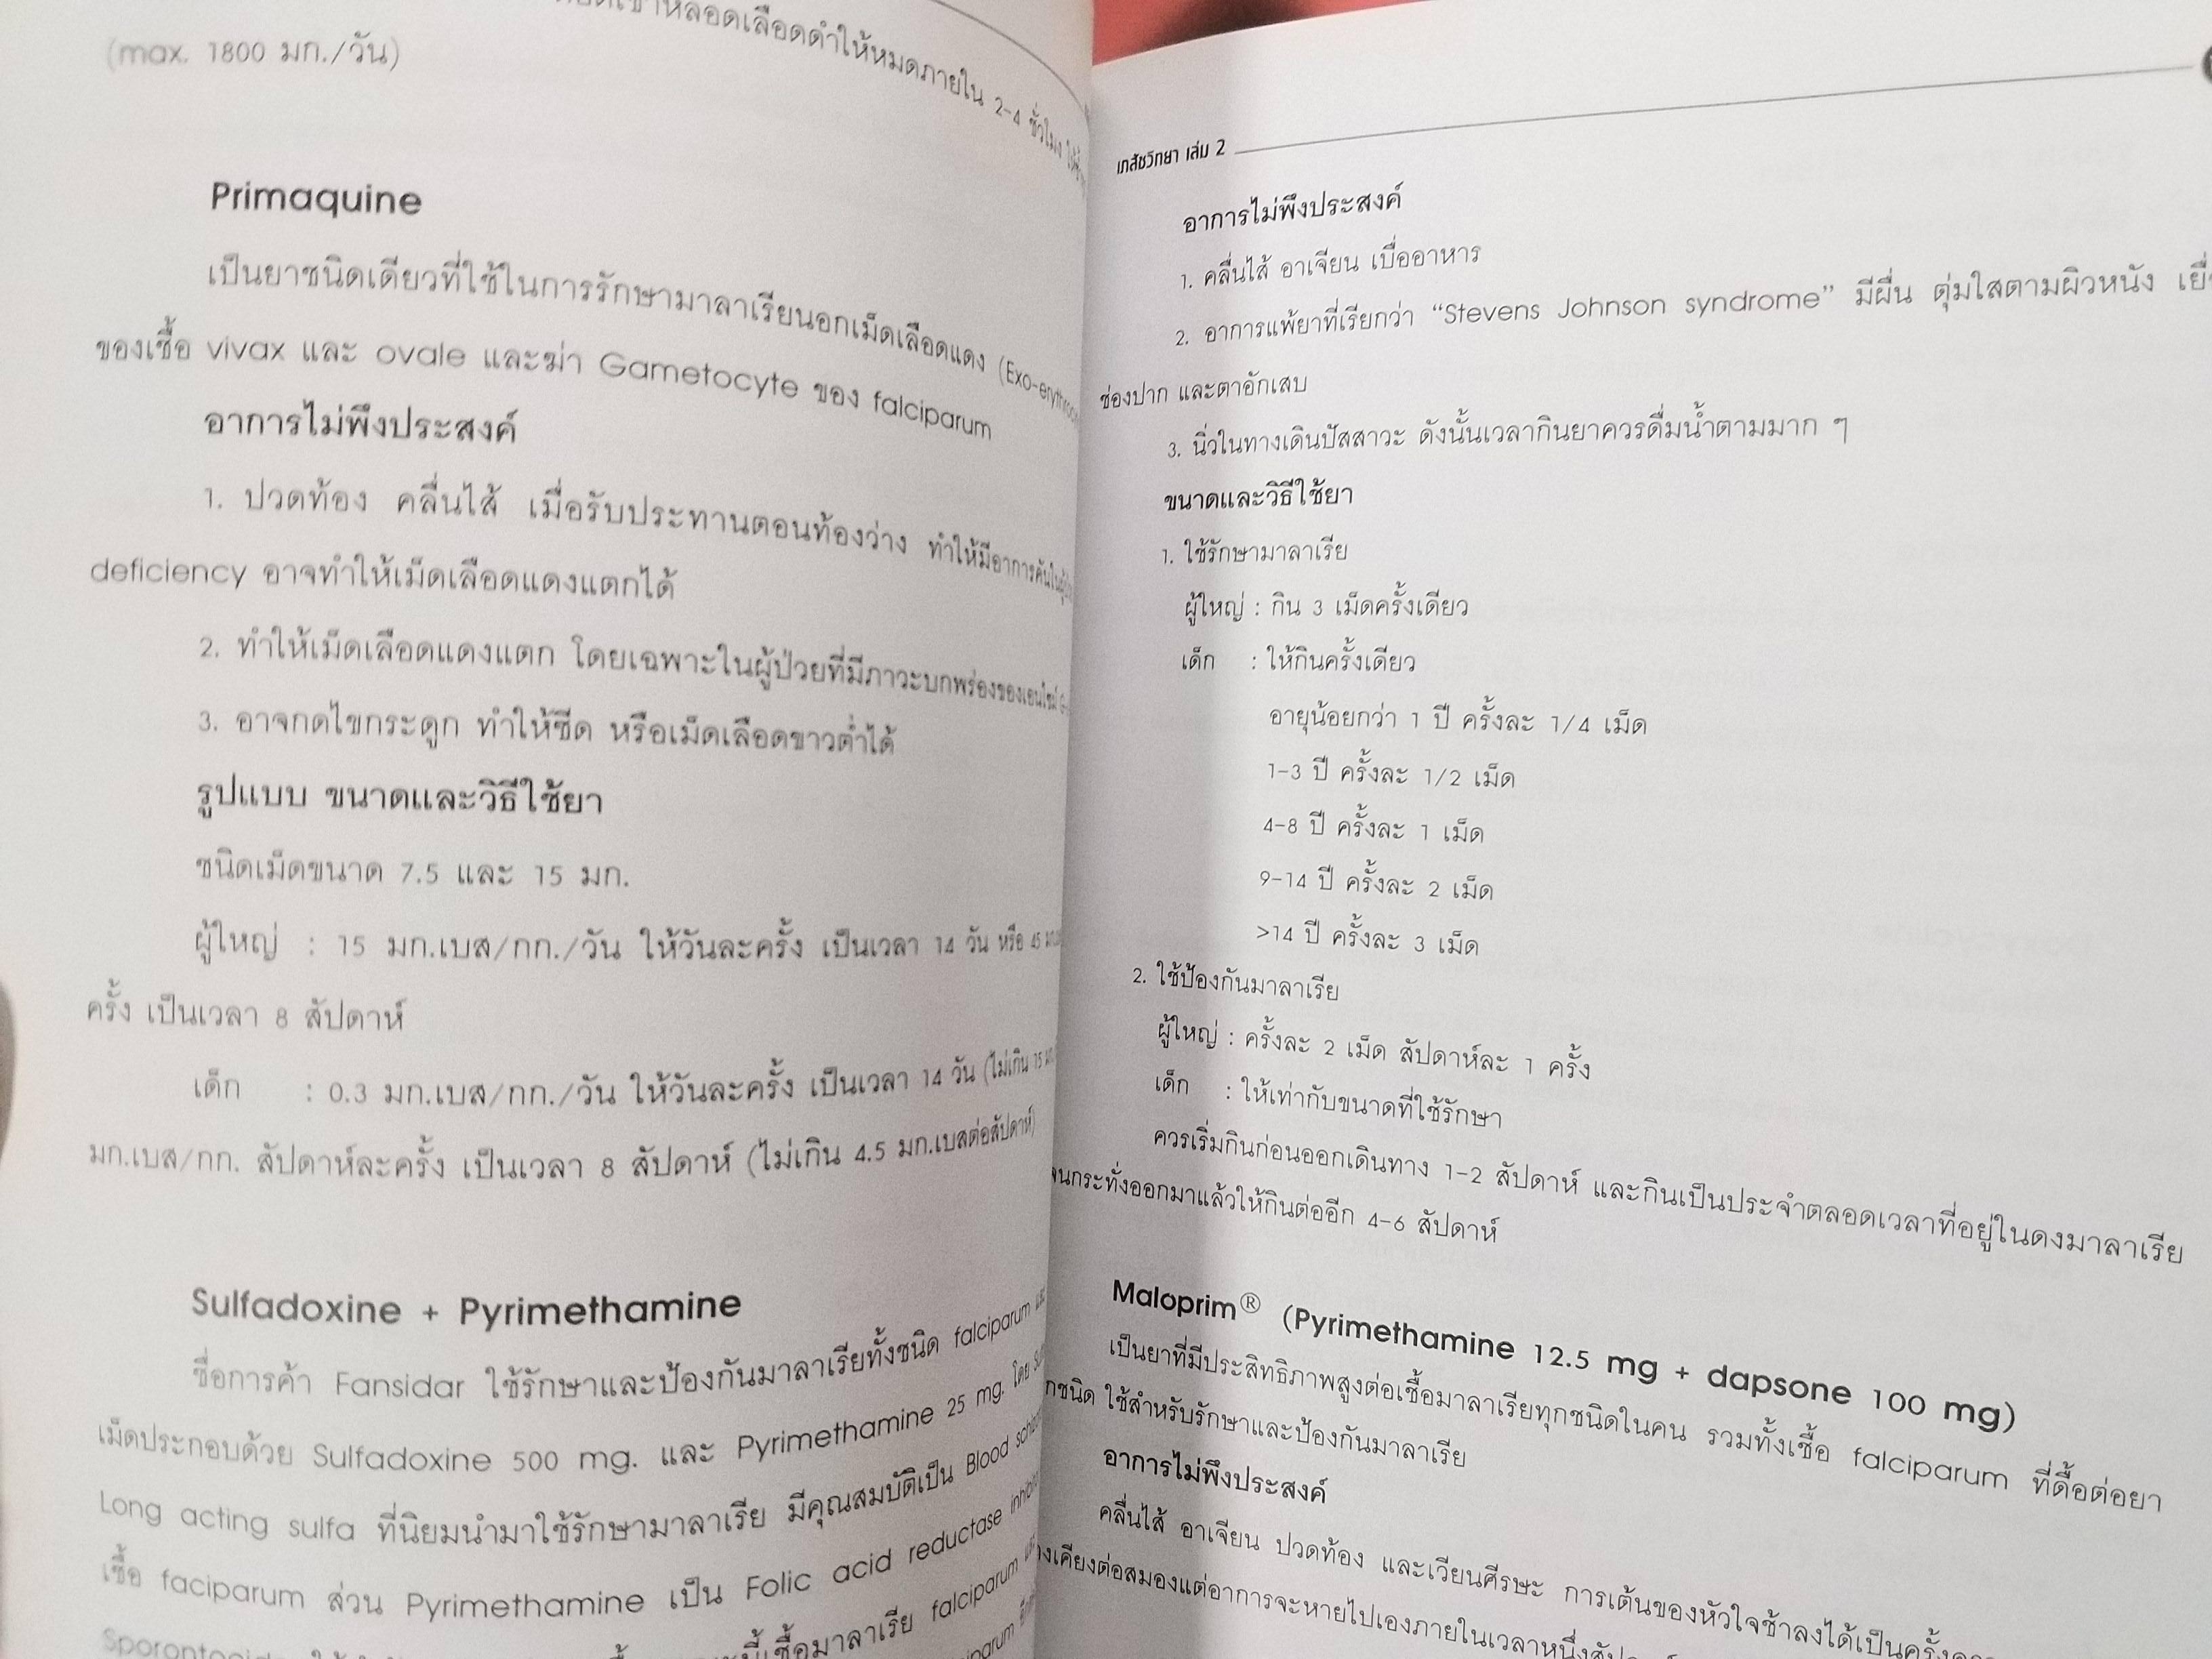 (max. 1800 มก./วัน)
หลอดเลือดดำให้หมดภายใน 2-4 ชั่วโมง
Primaquine
เป็นยาชนิดเดียวที่ใช้ในการรักษามาลาเรียนอกเม็ดเลือดแดง
ของเชื้อ vivax และ ovale และฆ่า Gametocyte ของ falciparum
อาการไม่พึงประสงค์
1. ปวดท้อง คลื่นไส้ เมื่อรับประทานตอนท้องว่าง ทำให้มีอาการคัน
deficiency อาจทำให้เม็ดเลือดแดงแตกได้
2. ทำให้เม็ดเลือดแดงแตก โดยเฉพาะในผู้ป่วยที่มีภาวะบกพร่องของเอนไซม์
3. อาจกดไขกระดูก ทำให้ซีด หรือเม็ดเลือดขาวต่ำได้
รูปแบบ ขนาดและวิธีใช้ยา
ชนิดเม็ดขนาด 7.5 และ 15 มก.
ผู้ใหญ่ : 15 มก.เบส/กก./วัน ให้วันละครั้ง เป็นเวลา 14 วัน หรือ 45
ครั้ง เป็นเวลา 8 สัปดาห์
เด็ก : 0.3 มก.เบส/กก./วัน ให้วันละครั้ง เป็นเวลา 14 วัน (ไม่เกิน 15
มก.เบส/กก. สัปดาห์ละครั้ง เป็นเวลา 8 สัปดาห์ (ไม่เกิน 4.5 มก.เบสต่อสัปดาห์)
Sulfadoxine + Pyrimethamine
ชื่อการค้า Fansidar ใช้รักษาและป้องกันมาลาเรียทั้งชนิด falciparum
เม็ดประกอบด้วย Sulfadoxine 500 mg. และ Pyrimethamine 25 mg. โดย
Long acting sulfa ที่นิยมนำมาใช้รักษามาลาเรีย มีคุณสมบัติเป็น Blood
เชื้อ faciparum ส่วน Pyrimethamine เป็น Folic acid reductase
เชื้อมาลาเรีย falciparum
เภสัชวิทยา เล่ม 2
อาการไม่พึงประสงค์
1. คลื่นไส้ อาเจียน เบื่ออาหาร
2. อาการแพ้ยาที่เรียกว่า “Stevens Johnson syndrome” มีผื่น ตุ่มใสตามผิวหนัง
ช่องปาก และตาอักเสบ
3. นิ่วในทางเดินปัสสาวะ ดังนั้นเวลากินยาควรดื่มน้ำตามมาก ๆ
ขนาดและวิธีใช้ยา
1. ใช้รักษามาลาเรีย
ผู้ใหญ่ : กิน 3 เม็ดครั้งเดียว
เด็ก : ให้กินครั้งเดียว
อายุน้อยกว่า 1 ปี ครั้งละ 1/4 เม็ด
1-3 ปี ครั้งละ 1/2 เม็ด
4-8 ปี ครั้งละ 1 เม็ด
9-14 ปี ครั้งละ 2 เม็ด
>14 ปี ครั้งละ 3 เม็ด
2. ใช้ป้องกันมาลาเรีย
ผู้ใหญ่ : ครั้งละ 2 เม็ด สัปดาห์ละ 1 ครั้ง
เด็ก : ให้เท่ากับขนาดที่ใช้รักษา
ควรเริ่มกินก่อนออกเดินทาง 1-2 สัปดาห์ และกินเป็นประจำตลอดเวลาที่อยู่ในดงมาลาเรีย
จนกระทั่งออกมาแล้วให้กินต่ออีก 4-6 สัปดาห์
Maloprim® (Pyrimethamine 12.5 mg + dapsone 100 mg)
เป็นยาที่มีประสิทธิภาพสูงต่อเชื้อมาลาเรียทุกชนิดในคน รวมทั้งเชื้อ falciparum ที่ดื้อต่อยา
ใช้สำหรับรักษาและป้องกันมาลาเรีย
อาการไม่พึงประสงค์
คลื่นไส้ อาเจียน ปวดท้อง และเวียนศีรษะ การเต้นของหัวใจช้าลงได้เป็นครั้ง
ต่อสมองแต่อาการจะหายไปเองภายในเวลาหนึ่ง